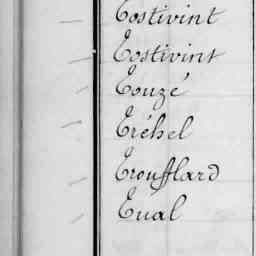 Tostivint
Tostivint
Touzé
Tréhel
Troufflard
Tual